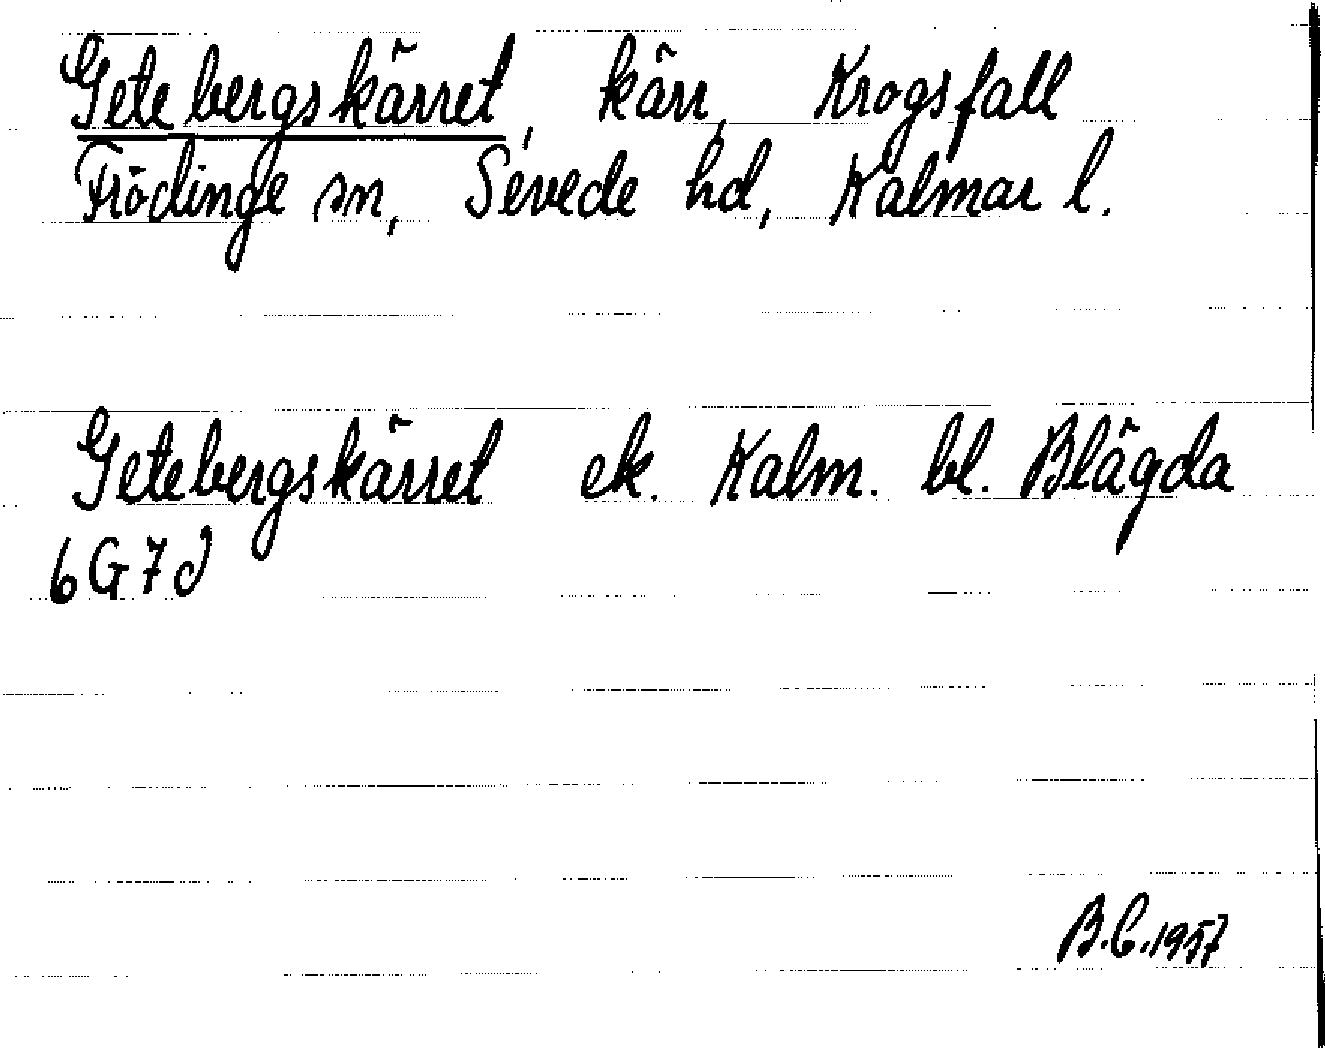 Getebergskärret, kärr, Krogsfall
Frödinge sn, Sevede hd, Kalmar l.
Getebergskärret ek. Kalm. bl. Blägda
6G7d
B.C.1957